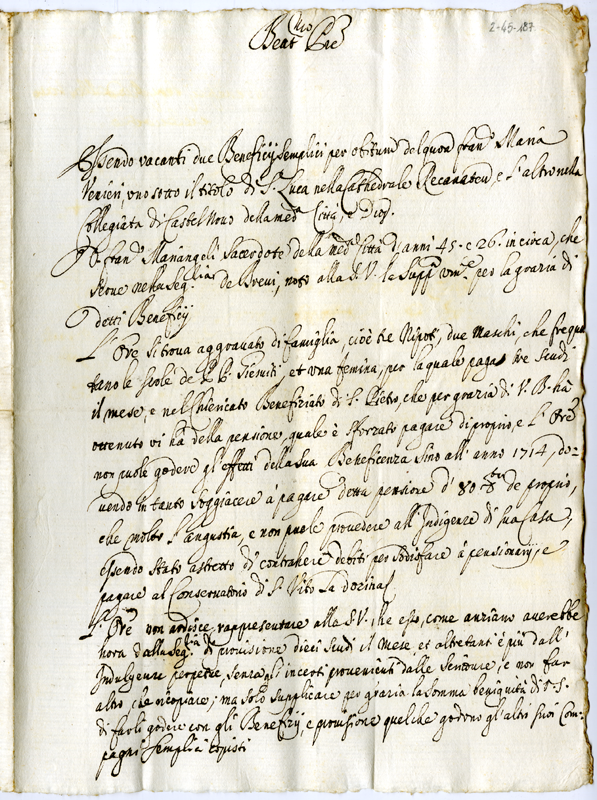 2-45-187
Beat.mo Pre
Essendo vacanti due Beneficij semplici per obitum del quon. Fran.o Maria
Venieri, uno sotto il titolo di S. Luca nella Cathedrale Recanaten, e l'altro nella
Collegiata di Castel Nuovo della med. Città, e Dios.
Fran.o Mariangeli Sacerdote della med. Città d'anni 45. e 26. in circa, che
serve nella Seg.ria de Brevi, noto alla S.V. le supp.a um.e per la grazia di
detti Beneficij
L'Ore si trova aggravato di famiglia, cioè tre Nipoti, due maschi, che frequen
tano le scole de P.P. Giesuiti, et una femina, per la quale paga tre scudi
il mese, e nel Chiericato Benefiziato di S. Pietro, che per grazia di V.B. ha
ottenuto vi ha della pensione, quale è sforzato pagare di proprio, e l'Ore
non puole godere gl'effetti della sua Beneficenza sino all'anno 1714, do-
vendo in tanto soggiacere à pagare detta pensione d' 80 de proprio,
che molto l'angustia, e non puole provedere all'Indigenze di sua Casa,
essendo stato astretto di contrahere debiti per sodisfare à pensionarij, e
pagare al Conservatorio di S. Vito la dozina
L'Ore non ardisce rappresentare alla S.V. che esso, come anziano averebbe
hora dalla Seg.ria di provisione dieci scudi il mese, et altretanti è più dall'
Indulgenze perpetue, senza gl'incerti provenienti dalle , e non far
altro che ricopiare; ma solo supplicare per grazia la somma benignità di V.S.
di farli godere con gli Beneficij, e provisione quel che godono gl'altri suoi Com-
pagni semplici copisti